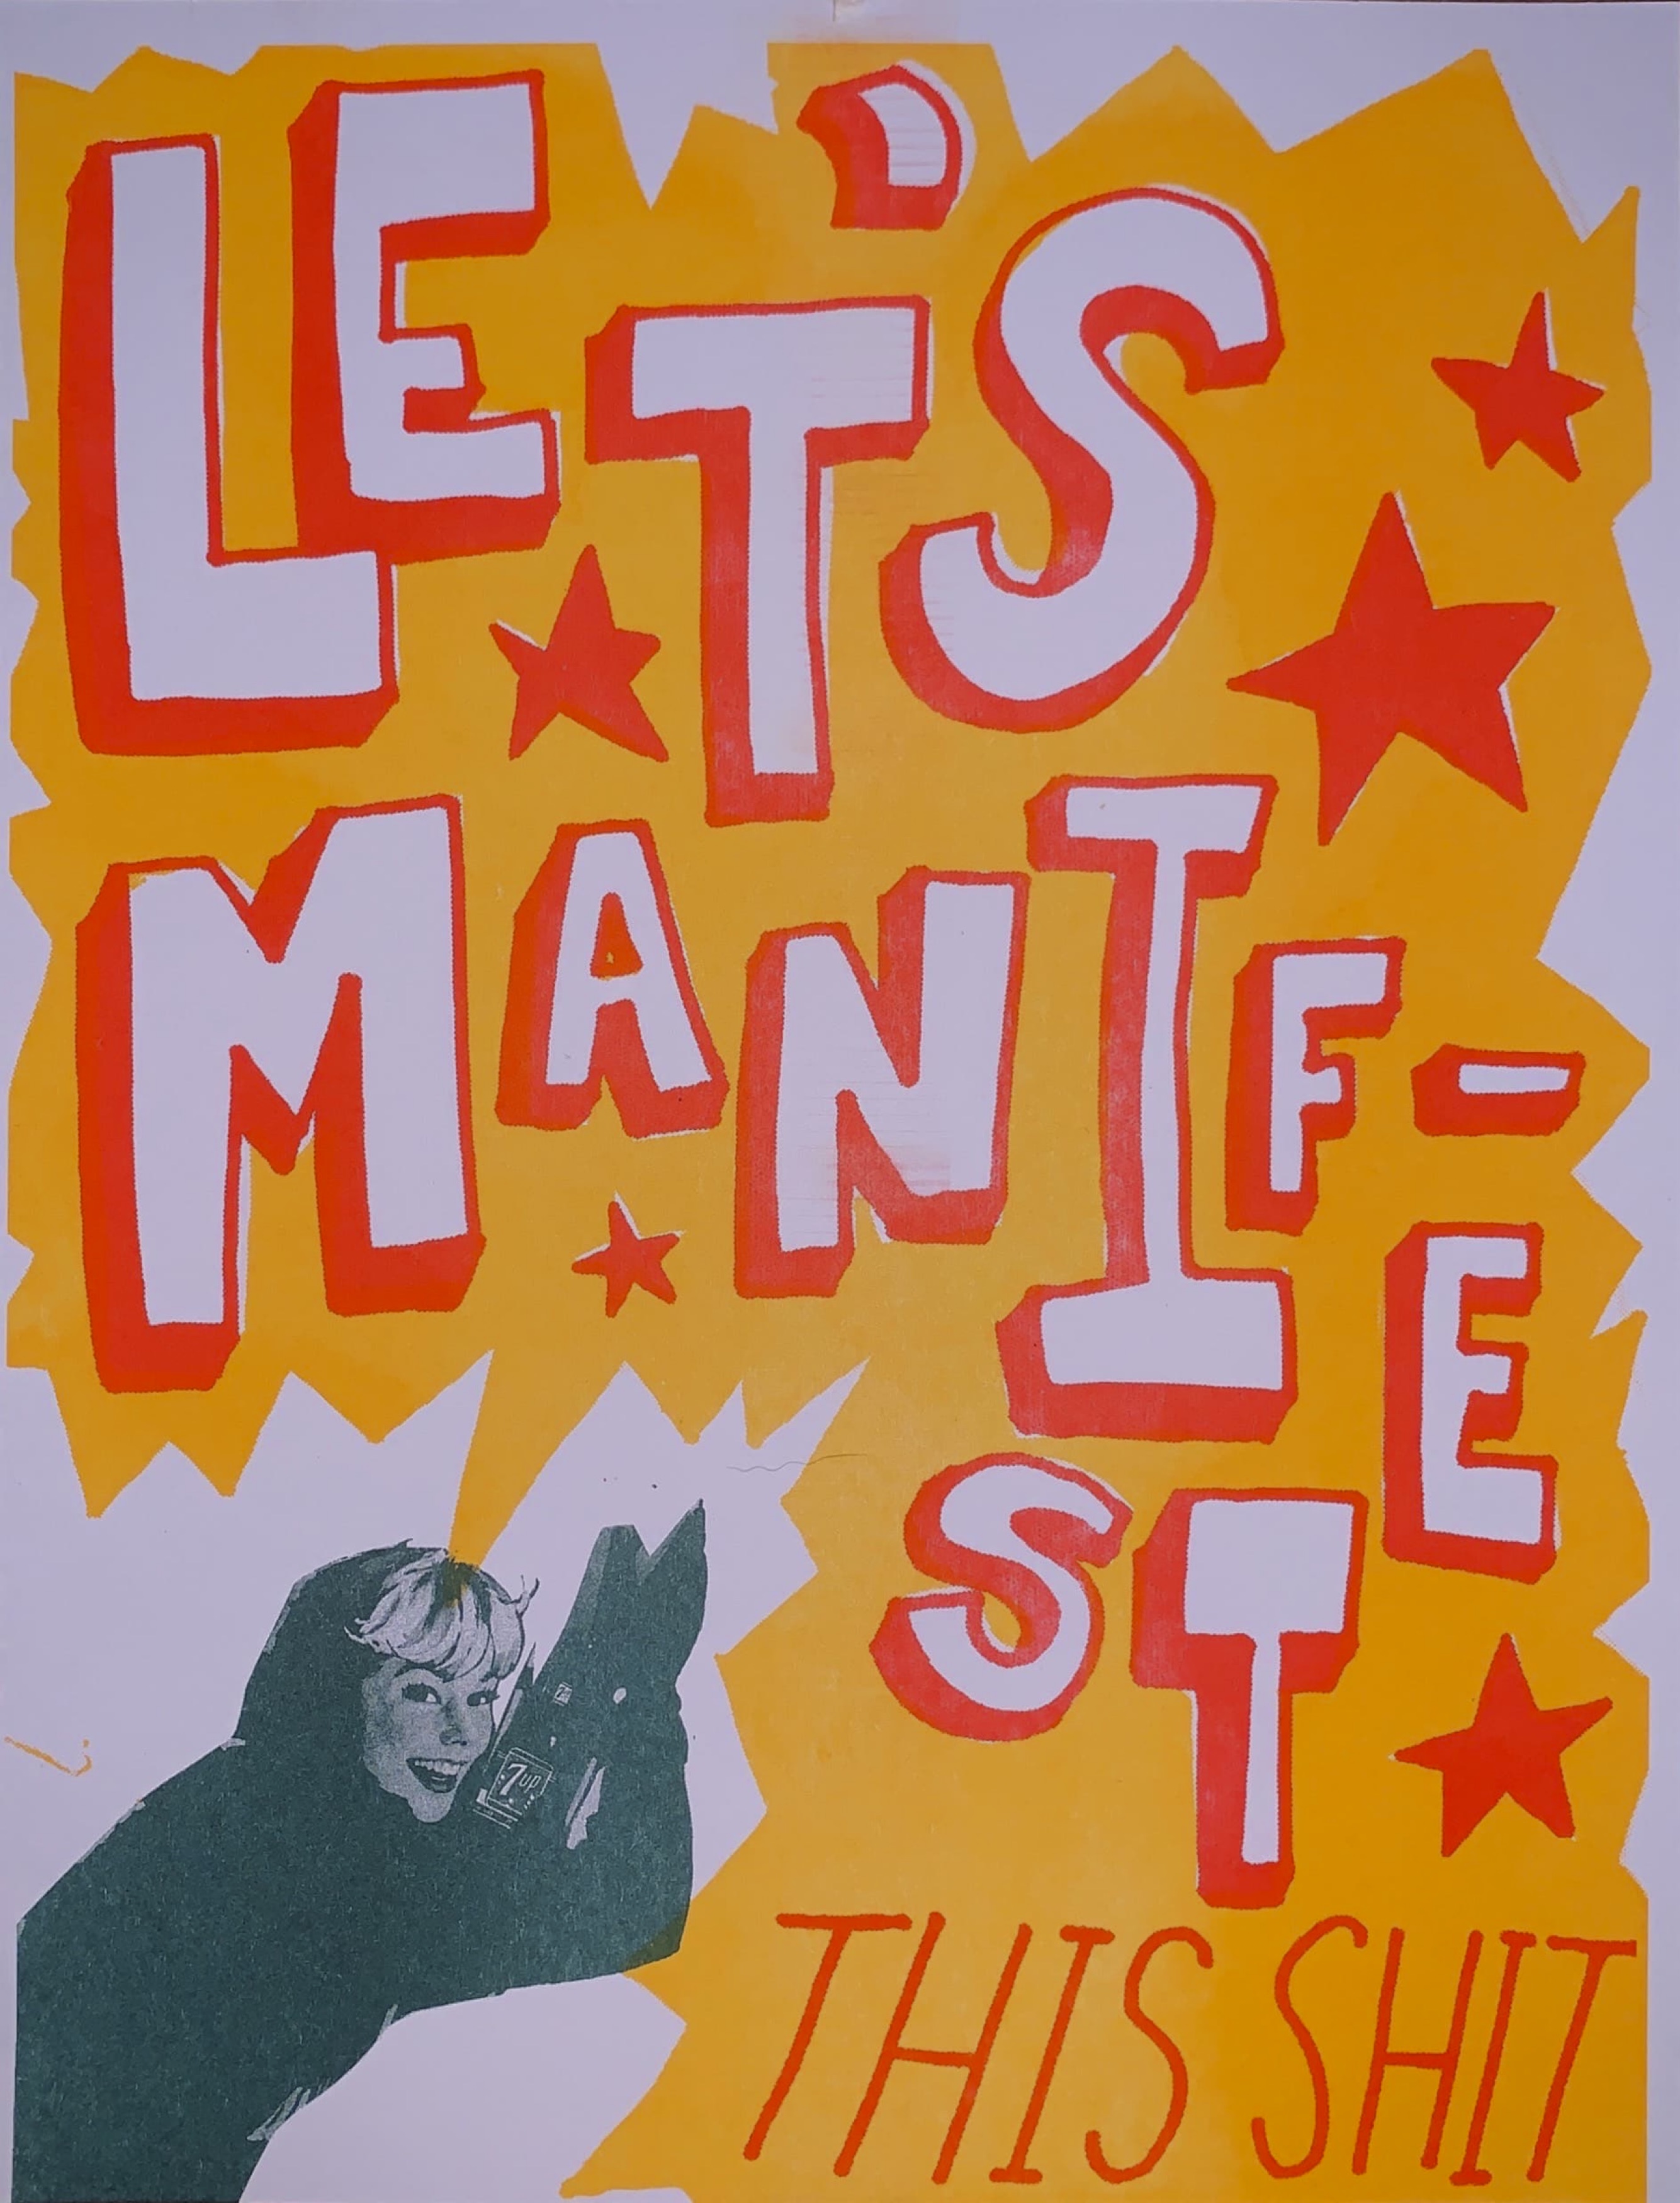 LET'S
MANIF-
E
ST
THIS SHIT
7UP